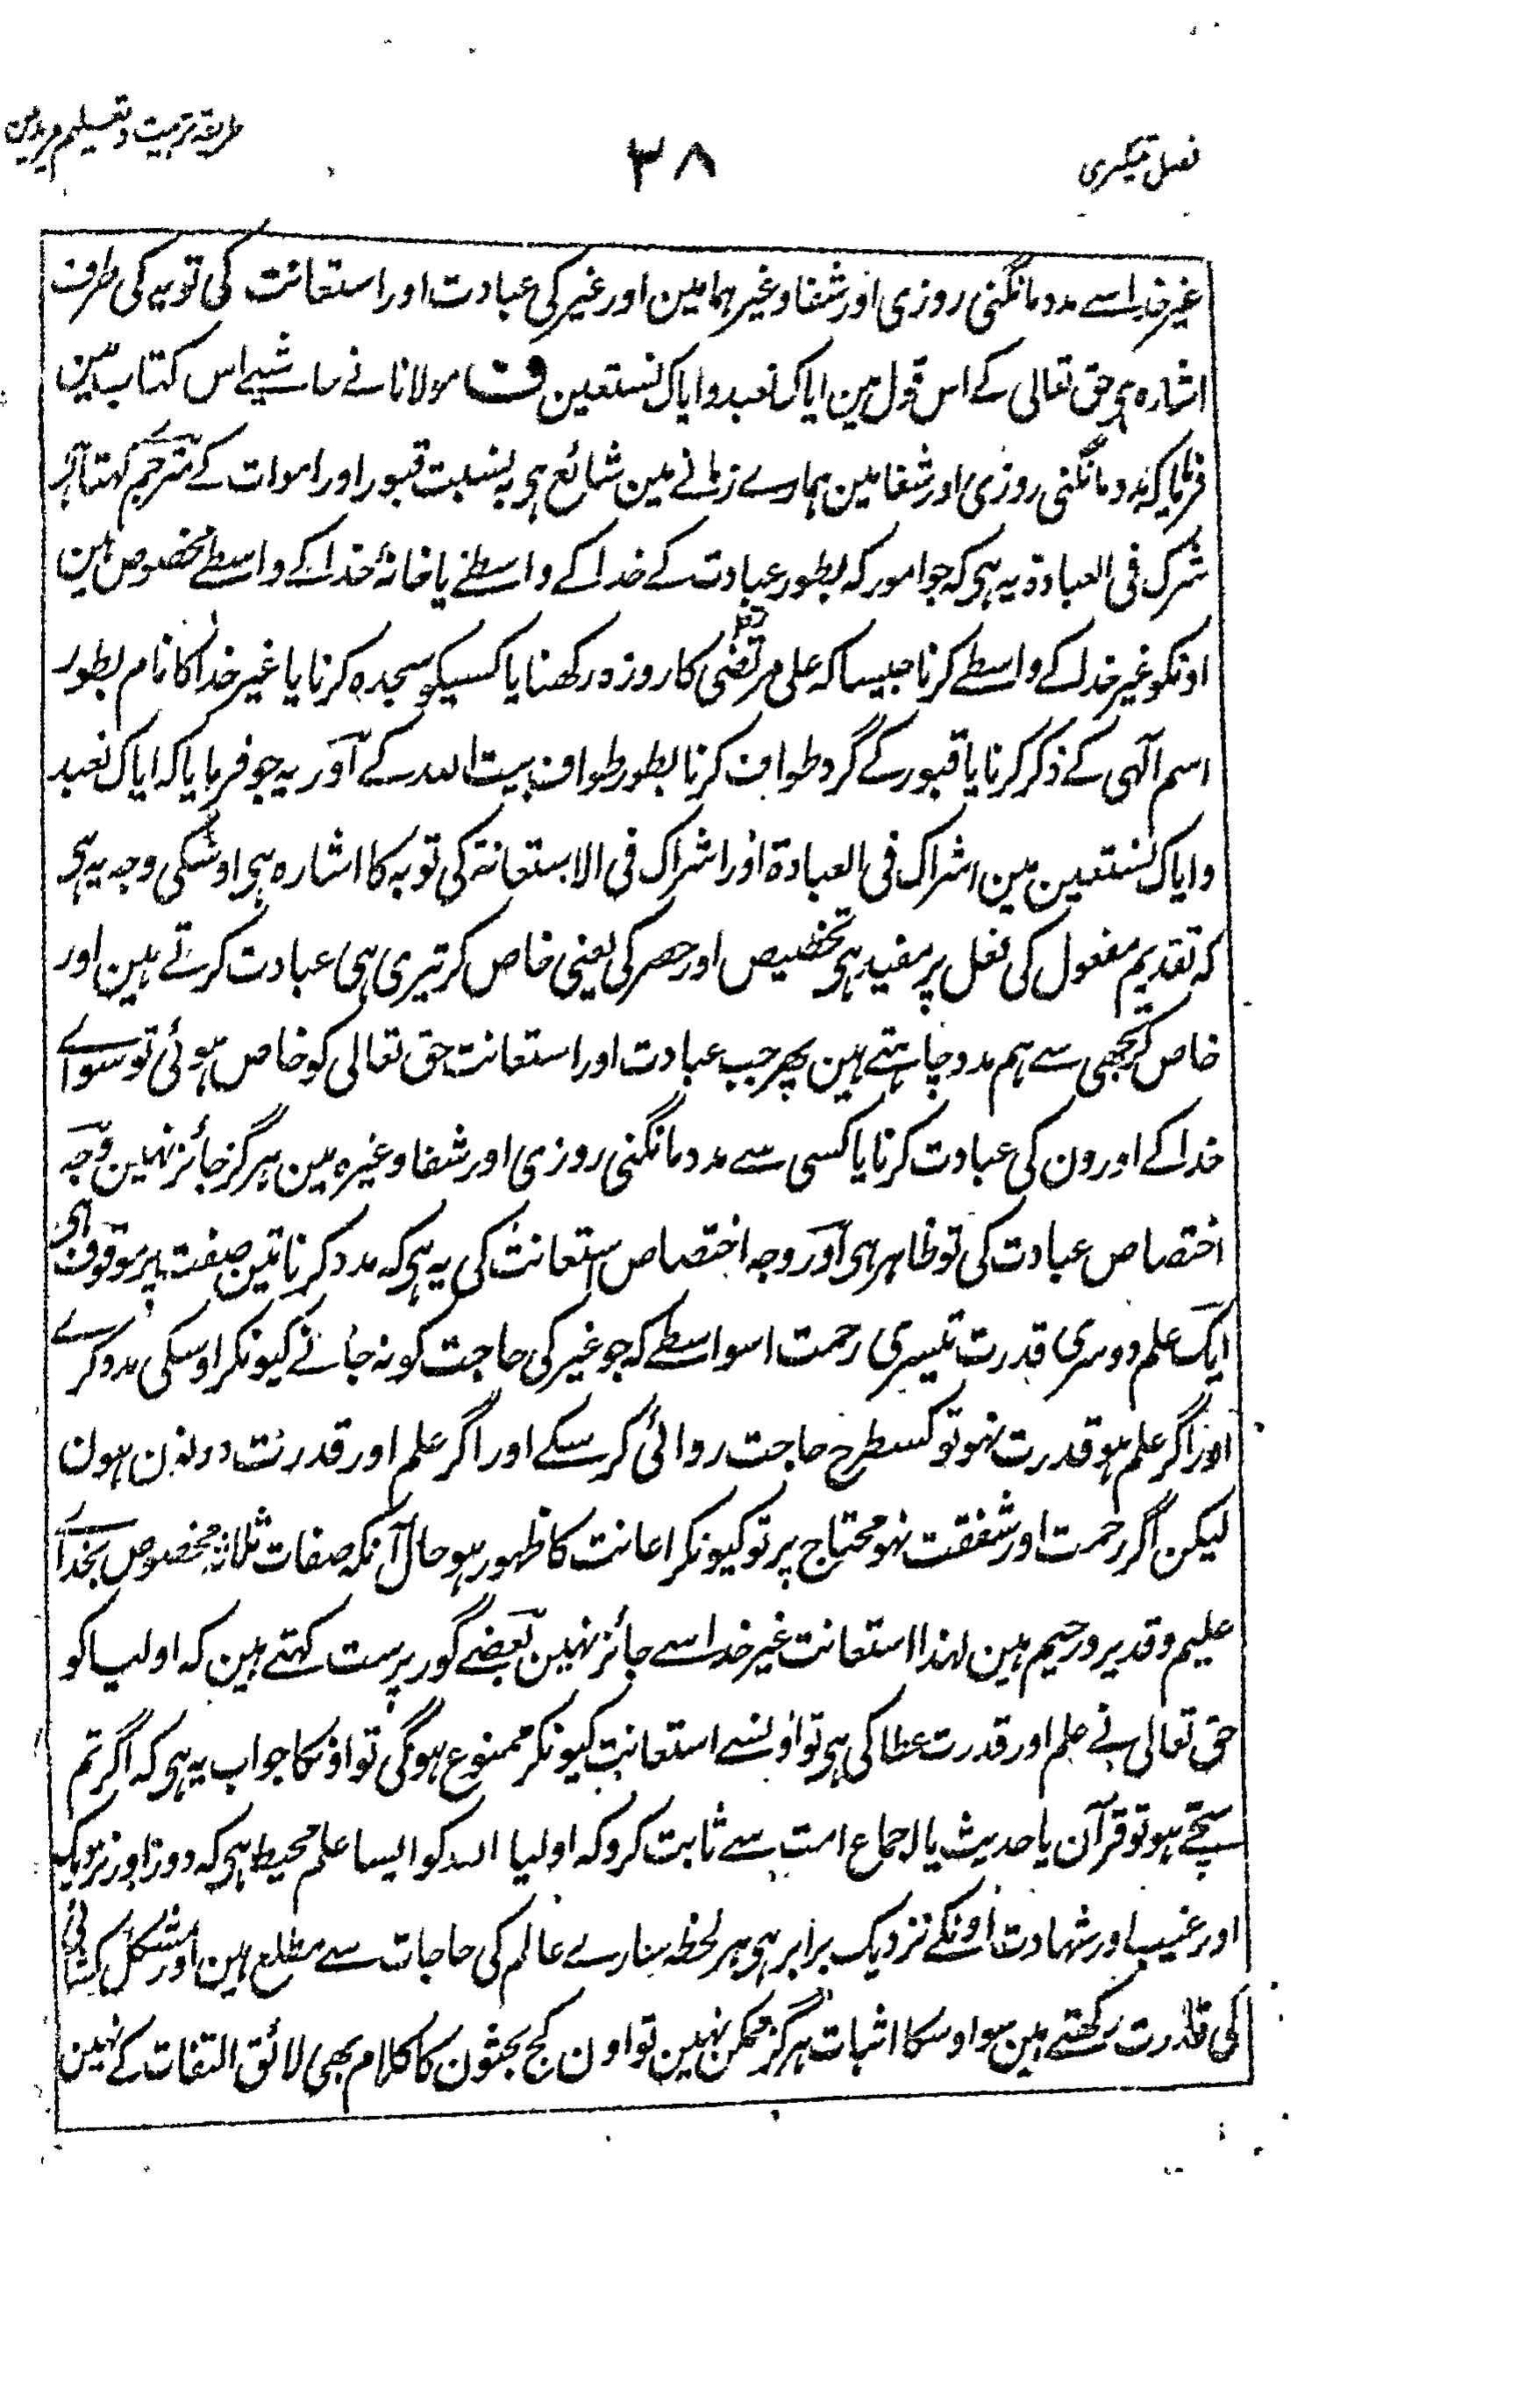 فصل تیسری
۳۸
طریقہ تربیت و تعلیم مریدین
غیر خدا سے مدد مانگنی روزی اور شفا وغیرہما مین اور غیر کی عبادت اور استعانت کی توبہ کی طرف
اشارہ ہی حق تعالی کے اس قول مین ایاک نعبد وایاک نستعین ف مولانا نے حاشیے اس کتاب مین
فرمایا کہ مدد مانگنی روزی اور شفا مین ہمارے زمانے مین شائع ہی بہ نسبت قبور اور اموات کے مترجم کہتا ہی
شرک فی العبادة یہ ہی کہ جو امور کہ بطور عبادت کے خدا کے واسطے یا خانۂ خدا کے واسطے مخصوص ہین
اونکو غیر خدا کے واسطے کرنا جیسا کہ علی مرتضی کا روزہ رکھنا یا کسیکو سجدہ کرنا یا غیر خدا کا نام بطور
اسم آلہی کے ذکر کرنا یا قبور کے گرد طواف کرنا بطور طواف بیت اللہ کے اور یہ جو فرمایا کہ ایاک نعبد
وایاک نستعین مین اشراک فی العبادة اور اشراک فی الاستعانة کی توبہ کا اشارہ ہی اوسکی وجہ یہ ہی
کہ تقدیم مفعول کی فعل پر مفید ہی تخصیص اور حصر کی یعنی خاص کر تیری ہی عبادت کرتے ہین اور
خاص کر تجھی سے ہم مدد چاہتے ہین پھر جب عبادت اور استعانت حق تعالی کو خاص ہوئی تو سواے
خدا کے اورون کی عبادت کرنا یا کسی سے مدد مانگنی روزی اور شفا وغیرہ مین ہرگز جائز نہین وجہ
اختصاص عبادت کی تو ظاہر ہی اور وجہ اختصاص استعانت کی یہ ہی کہ مدد کرنا تین صفت پر موقوف ہی
ایک علم دوسری قدرت تیسری رحمت اسواسطے کہ جو غیر کی حاجت کو نہ جانے کیونکر اوسکی مدد کرے
اور اگر علم ہو قدرت نہو تو کسطرح حاجت روائی کر سکے اور اگر علم اور قدرت دونون ہون
لیکن اگر رحمت اور شفقت نہو محتاج پر تو کیونکر اعانت کا ظہور ہو حال آنکہ صفات ثلاثہ مخصوص بخداے
علیم و قدیر و رحیم ہین لہذا استعانت غیر خدا سے جائز نہین بعضے گور پرست کہتے ہین کہ اولیا کو
حق تعالی نے علم اور قدرت عطا کی ہی تو اونسے استعانت کیونکر ممنوع ہوگی تو اونکا جواب یہ ہی کہ اگر تم
سچے ہو تو قرآن یا حدیث یا اجماع امت سے ثابت کرو کہ اولیا اللہ کو ایسا علم محیط ہی کہ دور اور نزدیک
اور غیب اور شہادت اونکے نزدیک برابر ہی ہر لحظہ سارے عالم کی حاجات سے مطلع ہین اور مشکل کشائی
کی قدرت رکھتے ہین سو اوسکا اثبات ہرگز ممکن نہین تو اون کج بحثون کا کلام بھی لائق التفات کے نہین